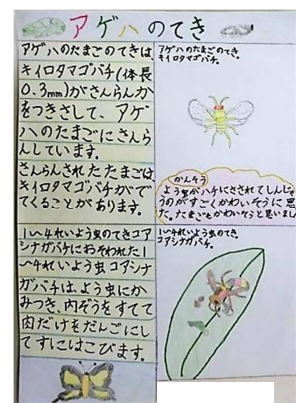 アゲハのてき
アゲハのたまごのてきは、
キイロタマゴバチ(体長
0.3mm)がさんらんか
をつきさして、アゲ
ハのたまごにさんら
んしています。
さんらんされたたまごは、
キイロタマゴバチがで
てくることがあります。
1〜4れいよう虫のてきコア
シナガバチにおそわれた1
〜4れいよう虫コアシナ
ガバチは、よう虫にか
みつき、内ぞうをすてて
肉だけをだんごにし
てすにはこびます。
アゲハのたまごのてき。
キイロタマゴバチ。
かんそう
よう虫がハチにさされてしんしゃ
うのがすごくかわいそうに思
た。たまごもかわいそうと思いまし
1〜4れいよう虫のてき。
コアシナガバチ。